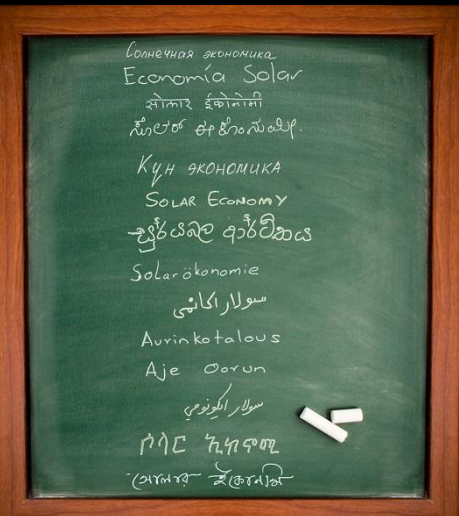 Солнечная экономика
Economía Solar
सोलार ईकोनोमी
ಸೋಲಾರ್ ಈಕೊನಾಮಿ.
Күн экономика
SOLAR ECONOMY
සූර්යබල ආර්ථිකය
Solarökonomie
سولار اکانمی
Aurinkotalous
Aje Oorun
سولار اکونومي
ሶላር ኢኮኖሚ
সোলার ইকোনমি